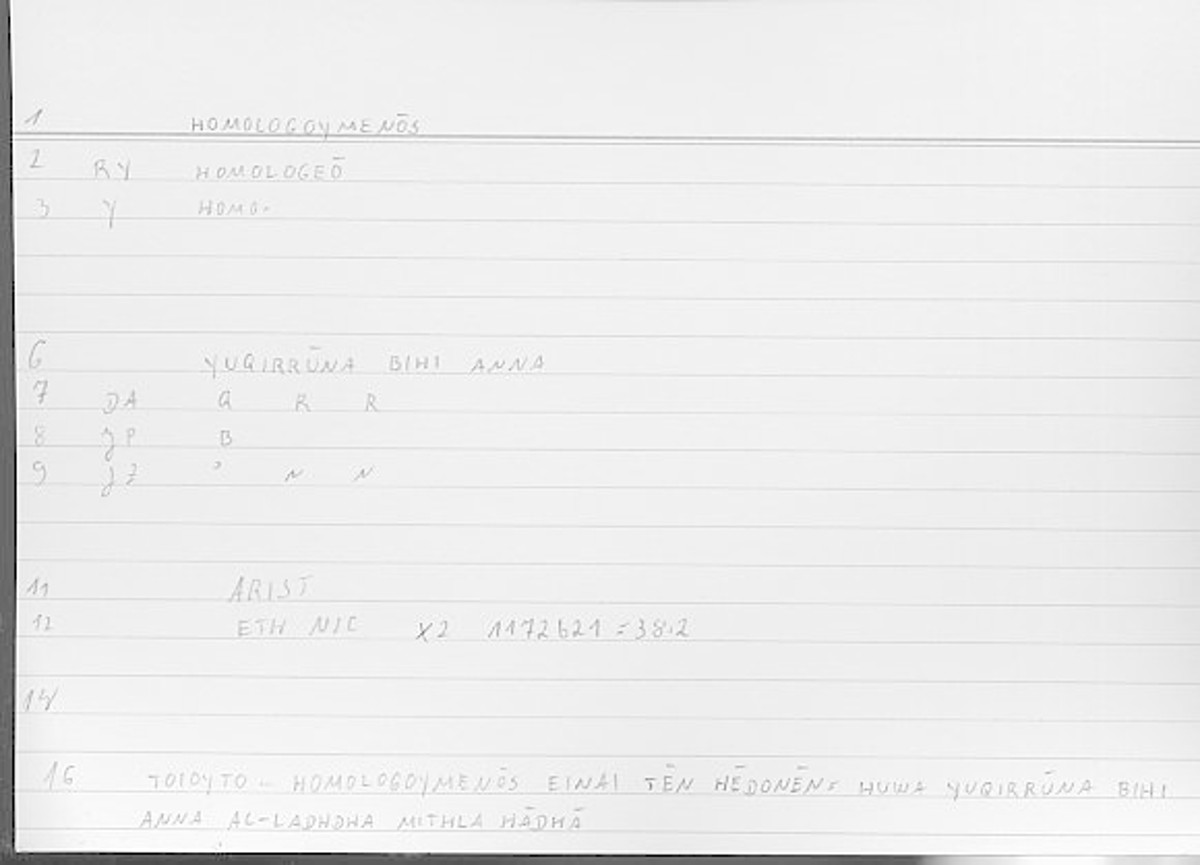 1 HOMOLOGOYMENŌS
2 RY HOMOLOGEŌ
3 Y HOMO-
6 YUQIRRŪNA BIHI ANNA
7 DA Q R R
8 JP B
9 JZ ' N N
11 ARIST
12 ETH NIC X2 1172b21 = 38.2
14
16 TOIOYTO - HOMOLOGOYMENŌS EINAI TĒN HĒDONĒN = HUWA YUQIRRŪNA BIHI
ANNA AL-LADHDHA MITHLA HĀDHĀ